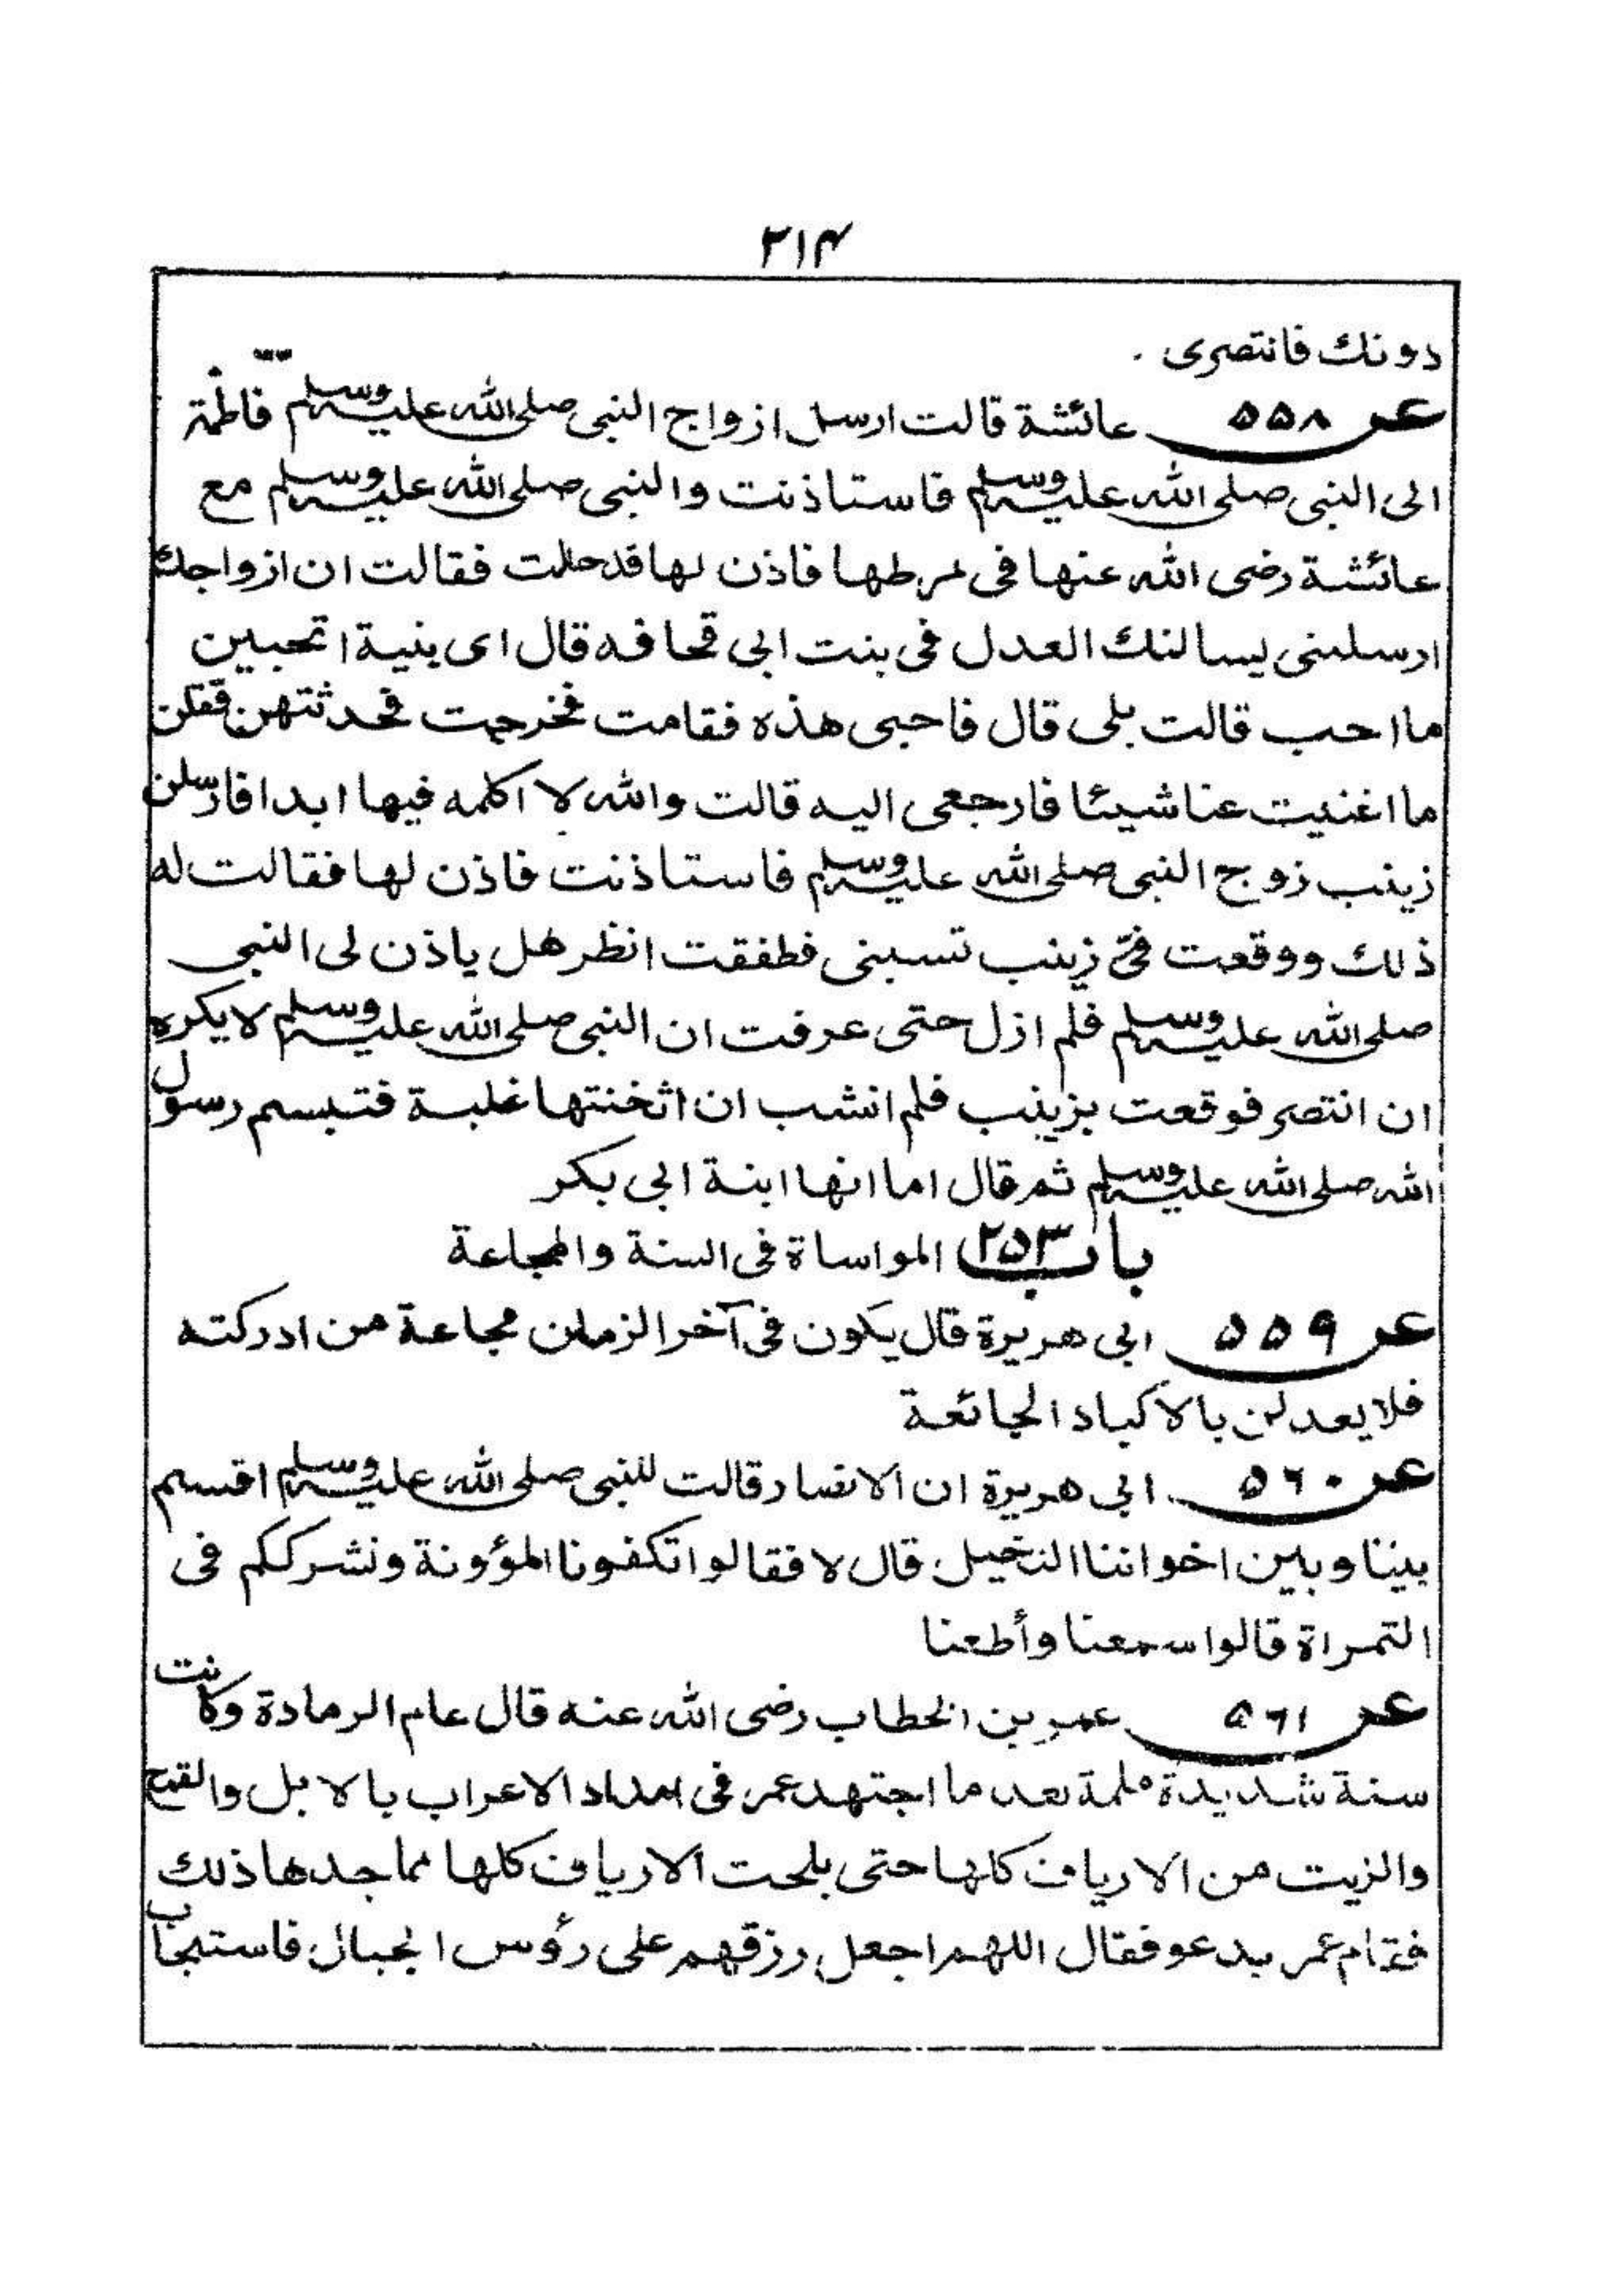 ٢١٤
دونك فانتصرى .
عن ٥٥٨ عائشة قالت ارسل ازواج النبى صلى الله عليه وسلم فاطمة
الى النبى صلى الله عليه وسلم فاستاذنت والنبى صلى الله عليه وسلم مع
عائشة رضى الله عنها فى مرطها فاذن لها فدخلت فقالت ان ازواجك
ارسلننى يسالنك العدل فى بنت ابى قحافه قال اى بنية اتحبين
ما احب قالت بلى قال فاحبى هذه فقامت فخرجت فحدثتهن فقلن
ما اغنيت عنا شيئا فارجعى اليه قالت والله لا اكلمه فيها ابدا فارسلن
زينب زوج النبى صلى الله عليه وسلم فاستاذنت فاذن لها فقالت له
ذلك ووقعت فىّ زينب تسبنى فطفقت انظر هل ياذن لى النبى
صلى الله عليه وسلم فلم ازل حتى عرفت ان النبى صلى الله عليه وسلم لا يكره
ان انتصر فوقعت بزينب فلم انشب ان اثخنتها غلبة فتبسم رسول
الله صلى الله عليه وسلم ثم قال اما انها ابنة ابى بكر
باب ٢٥٣ المواساة فى السنة والمجاعة
عن ٥٥٩ ابى هريرة قال يكون فى آخر الزمان مجاعة من ادركته
فلا يعدلن بالأكباد الجائعة
عن ٥٦٠ ابى هريرة ان الانصار قالت للنبى صلى الله عليه وسلم اقسم
بيننا وبين اخواننا النخيل قال لا فقالوا تكفونا المؤونة ونشرككم فى
التمراة قالوا سمعنا وأطعنا
عن ٥٦١ عمر بن الخطاب رضى الله عنه قال عام الرمادة وكانت
سنة شديدة ملمة بعد ما اجتهد عمر فى امداد الاعراب بالابل والقمح
والزيت من الارياف كلها حتى بلحت الارياف كلها مما جدها ذلك
فقام عمر يدعو فقال اللهم اجعل رزقهم على رؤس الجبال فاستجاب